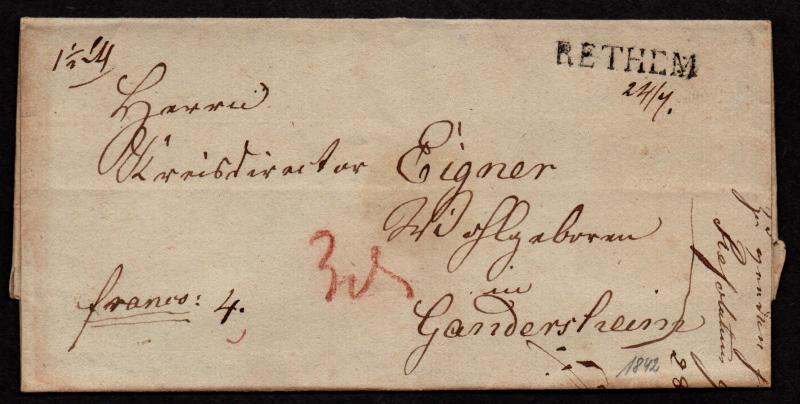 RETHEM
24/7.
Herrn
Kreisdirector Eigner
Wohlgeboren
in
Gandersheim
franco: 4.
1842
28